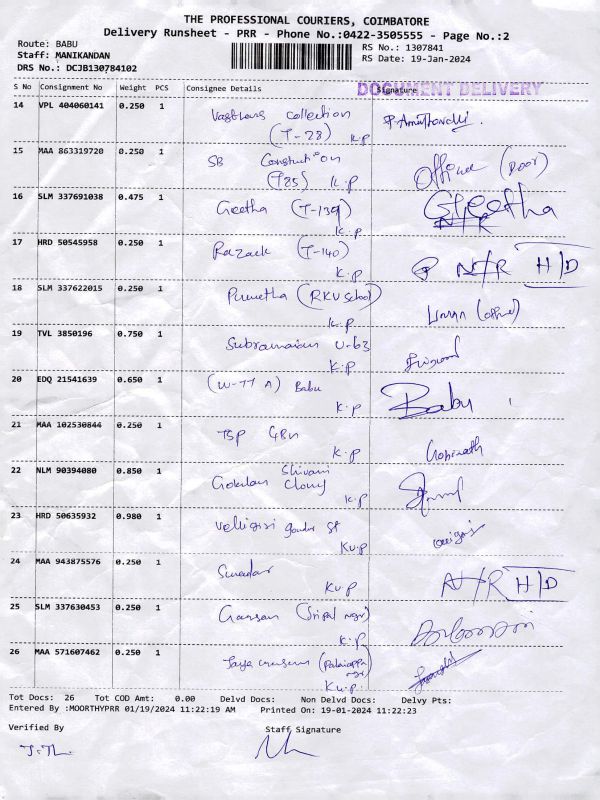 THE PROFESSIONAL COURIERS, COIMBATORE
Delivery Runsheet - PRR - Phone No.:0422-3505555 - Page No.:2
Route: BABU
RS No.: 1307841
Staff: MANIKANDAN
RS Date: 19-Jan-2024
DRS No.: DCJB130784102
DOCUMENT DELIVERY
S No Consignment No Weight PCS Consignee Details Signature
14 VPL 404060141 0.250 1 collection
(T-28) K.P
15 MAA 863319720 0.250 1 SB
(T85) K.P
16 SLM 337691038 0.475 1 Geetha (T-139) Geetha
K.P N/R
17 HRD 50545958 0.250 1 Razack (T-140) N/R H/D
K.P
18 SLM 337622015 0.250 1 (RKV School)
K.P
19 TVL 3850196 0.750 1 U-63
K.P
20 EDQ 21541639 0.650 1 (W-77 A) Babu Babu
K.P
21 MAA 102530844 0.250 1 TSP GBN Gopinath
K.P
22 NLM 90394080 0.850 1 Gokulan Shivani
K.P
23 HRD 50635932 0.980 1 Velligiri St
KU.P
24 MAA 943875576 0.250 1 N/R H/D
KU.P
25 SLM 337630453 0.250 1
K.P
26 MAA 571607462 0.250 1 Jaya
KU.P
Tot Docs: 26 Tot COD Amt: 0.00 Delvd Docs: Non Delvd Docs: Delvy Pts:
Entered By :MOORTHYPRR 01/19/2024 11:22:19 AM Printed On: 19-01-2024 11:22:23
Verified By Staff Signature